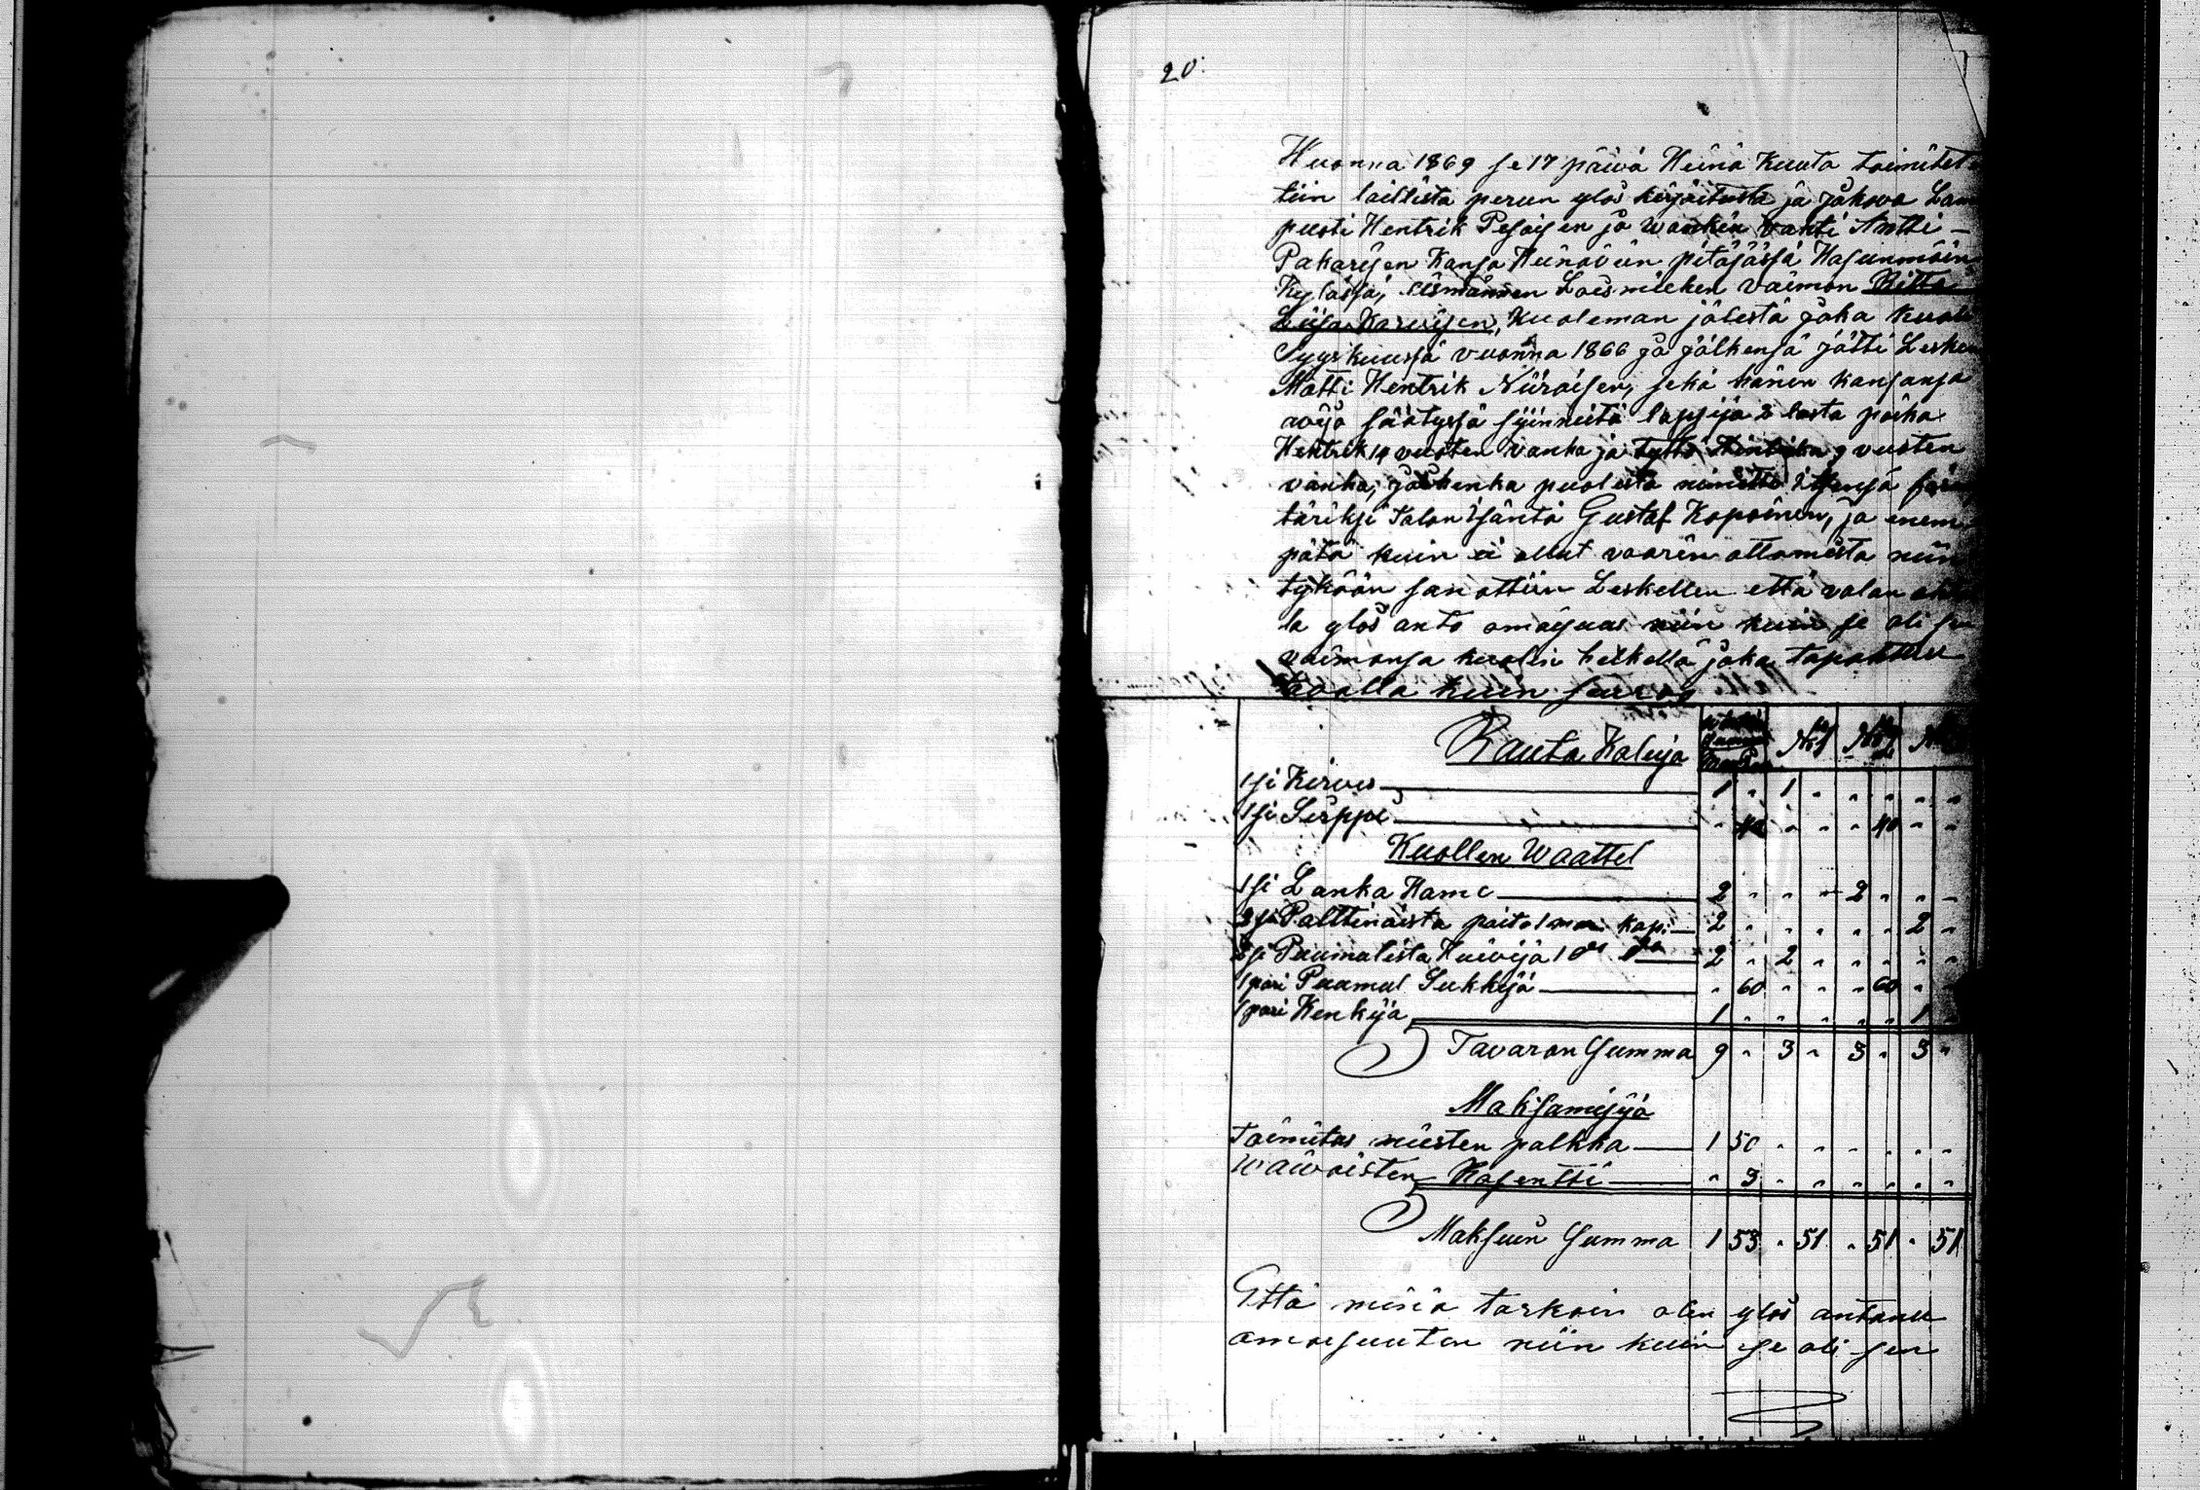 20.
Wuonna 1869 se 17 päivä Heinä Kuuta toimitet
tiin laillista perun ylös kirjoitusta ja jakova Lam
puoti Hentrik Pesoisen ja Wankin Vahti Antti –
Pakarisen Kansa Heinävein pitäjässä Hasunmäin
Kylässä, itsmännen Loismiehen vaimon Riitta
Liisa Karvisen, Kuoleman jälestä joka kuoli
Syyskuussa vuonna 1866 ja jälkensä jätti Lesken
Matti Hentrik Niiraisen, sekä hänen kansansa
avijo säätyssä syinneitä lapsija 2 lasta poika
Hentrik 14 vuoten vanha ja tyttö 9 vuoten
vanha, joihenka puolesta nimitti itsensä
täriksi Talon Isäntä Gustaf Kopoinen, ja enem
pätä kuin ei ollut vaarin ottamista niin
tyköön sanottiin Leskellen että valan
la ylös anto omaisuus niin kuin se oli sen
vaimonsa kuolin hetkellä joka tapahtuu
tavalla kuin seuraa
Rauta Kaluja N:1 N:2
1si Kirves 1 " 1 " " " " "
1si Sirppi " 40 " " " 40 " "
Kuollen Waattet
1si Lanka Hame 2 " " " 2 " " "
2si Palttinaista paitoa 1 mar kap: 2 " " " " " 2 "
2si Puumulista Huivija 1 2 " 2 " " " " "
1 pari Puumul Sukkija " 60 " " " 60 " "
1 pari Kenkijä 1 " " " " " 1 "
Tavaran Summa 9 " 3 " 3 " 3 "
Maksamisija
Toimitus miesten palkka 1 50 " " " " " "
Waivaisten Rosentti " 3 " " " " " "
Maksuin Summa 1 53 " 51 " 51 " 51
Että minä tarkoin olen ylös antanu
omaisuuten niin kuin se oli sen